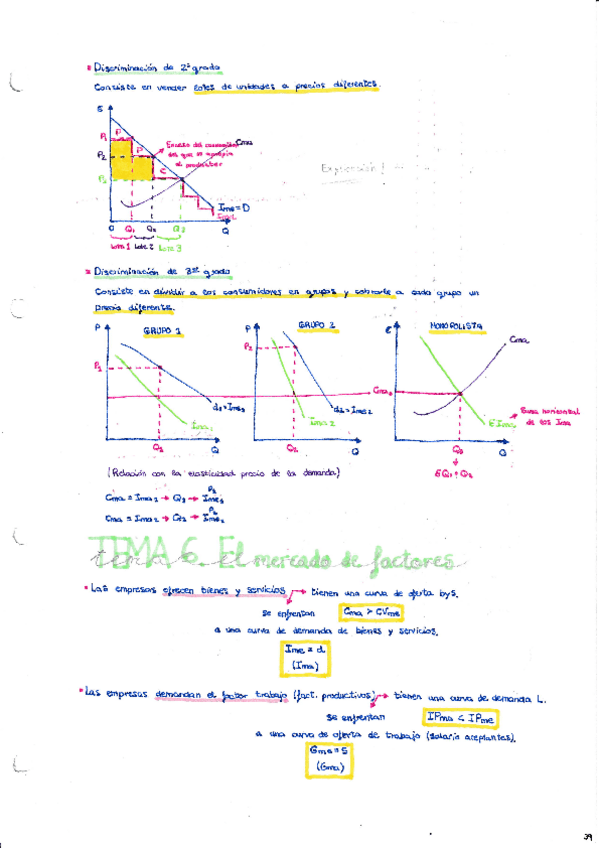 Discriminación de 2º grado
Consiste en vender lotes de unidades a precios diferentes.
€
P1
P
P2
P
Exceso del consumidor
del que se apropia
el productor
Cma
C
P3
Ime = D
Ima
0 Q1 Q2 Q3 Q
Lote 1 Lote 2 Lote 3
Discriminación de 3er grado
Consiste en dividir a los consumidores en grupos y cobrarle a cada grupo un
precio diferente.
P GRUPO 1
P1
d1 = Ime1
Ima1
Q1 Q
P GRUPO 2
P2
d2 = Ime2
Ima2
Q2 Q
€ MONOPOLISTA
Cma
Cma0
ΣIma
Suma horizontal
de los Ima
Q0 Q
(Relación con la elasticidad precio de la demanda)
TEMA 6. El mercado de factores
tema 6
Las empresas ofrecen bienes y servicios → tienen una curva de oferta bys.
se enfrentan Cma > CVme
a una curva de demanda de bienes y servicios.
Ime = d
(Ima)
Las empresas demandan el factor trabajo (fact. productivos) → tienen una curva de demanda L.
se enfrentan IPma < IPme
a una curva de oferta de trabajo (salario aceptantes).
Gme = S
(Gma)
39